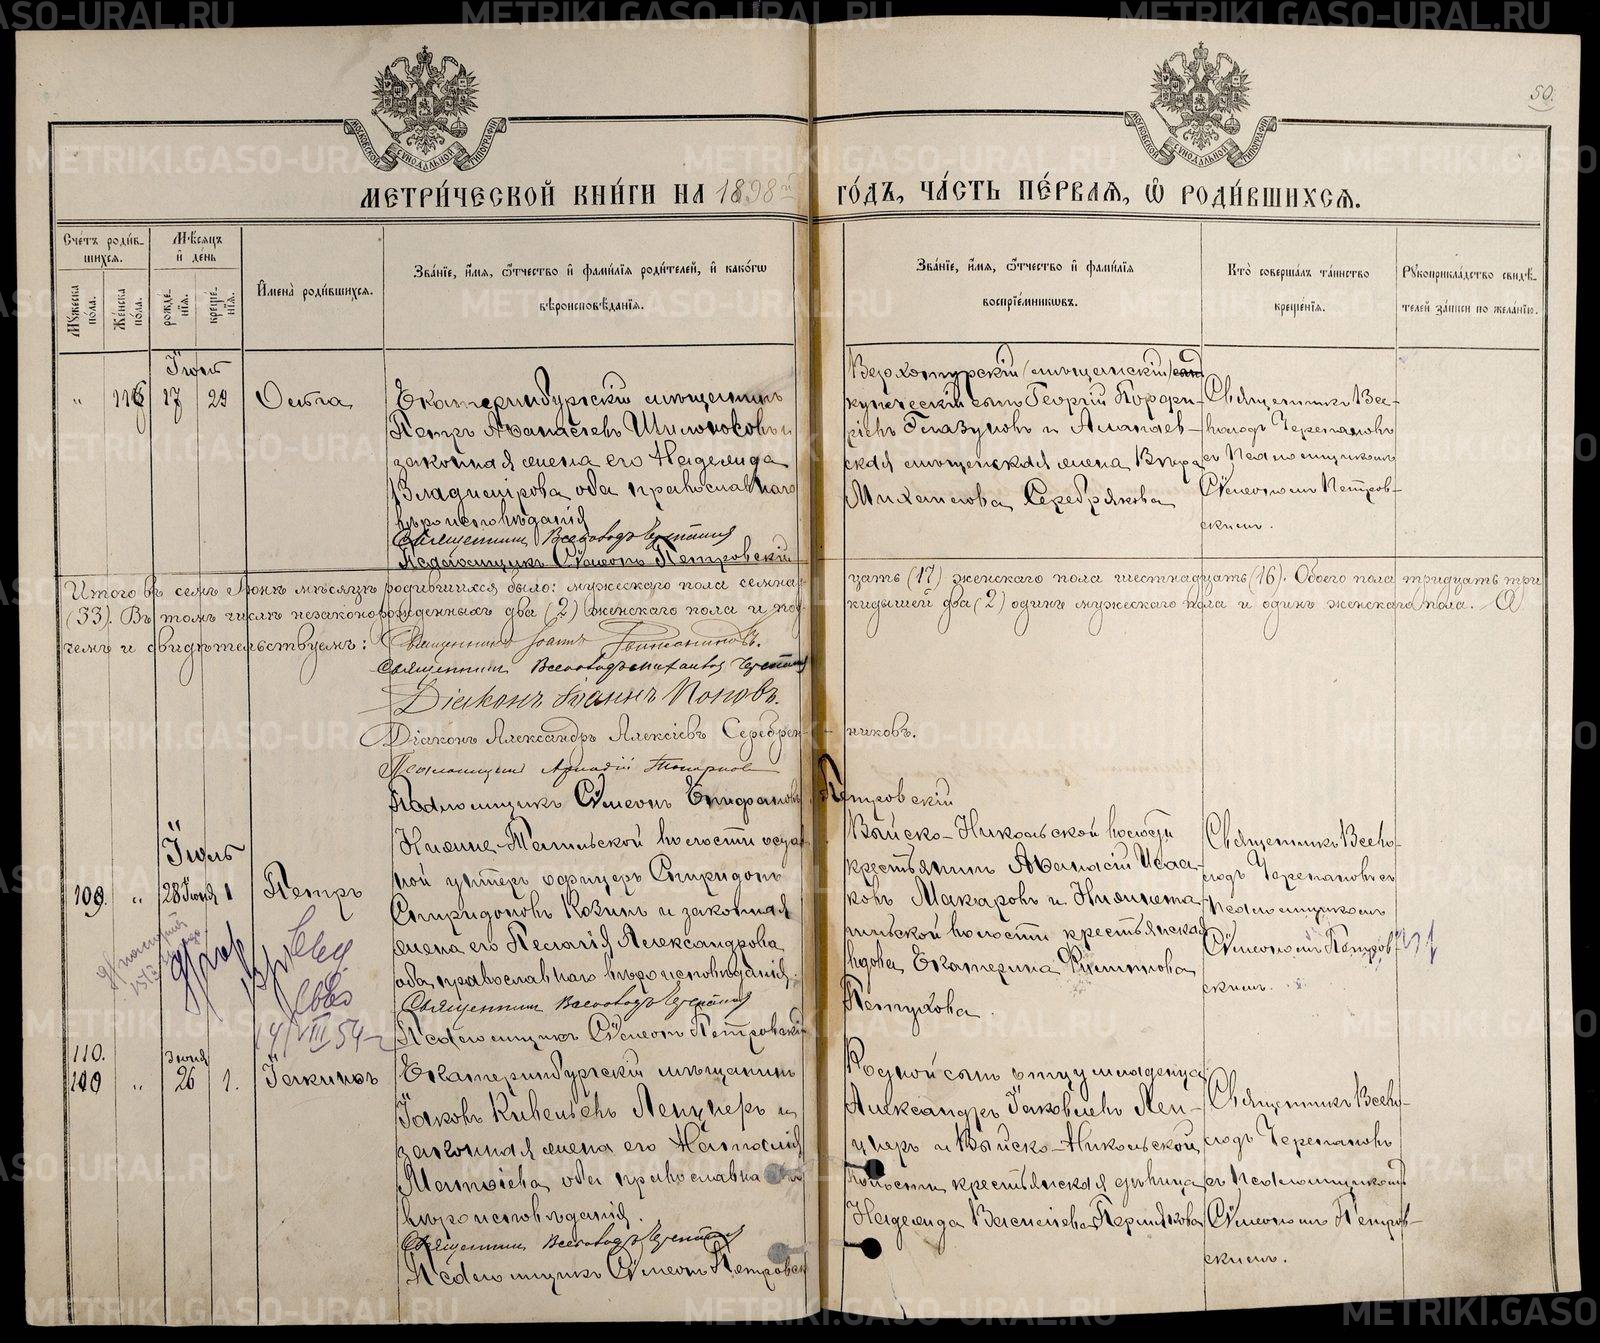 50.
МОСКОВСКОЙ СѴНОДАЛЬНОЙ ТИПОГРАФІИ
МОСКОВСКОЙ СѴНОДАЛЬНОЙ ТИПОГРАФІИ
МЕТРИ́ЧЕСКОЙ КНИ́ГИ НА 1898й ГО́ДЪ, ЧА́СТЬ ПЕ́РВАѦ, Ѡ҆ РОДИ́ВШИХСѦ.
Сче́тъ роди́в-
шихсѧ.
Мꙋ́жеска
по́ла.
Же́нска
по́ла.
Мѣ́сѧцъ
и҆ де́нь
рожде́-
нїѧ.
креще́-
нїѧ.
И҆мена̀ роди́вшихсѧ.
Зва́нїе, и҆́мѧ, ѻ҆́тчество и҆ фами́лїѧ роди́телей, и҆ како́гѡ
вѣроисповѣ́данїѧ.
Зва́нїе, и҆́мѧ, ѻ҆́тчество и҆ фами́лїѧ
воспрїе́мникѡвъ.
Кто̀ соверша́лъ та́инство
креще́нїѧ.
Рꙋкоприкла́дство свидѣ́-
телей за́писи по жела́нїю.
Іюнь
" 116 17 29 Ольга
Екатеринбургскій мѣщанинъ
Петръ Аѳанасіевъ Шилоносовъ и
законная жена его Надежда
Владимірова оба православнаго
вѣроисповѣданія
Священникъ Всеволодъ Черепановъ
Псаломщикъ Сѵмеонъ Петровскій
Верхотурскій (мѣщанскій)
купеческій сынъ Георгій Порфи-
ріевъ Глазуновъ и Алапаев-
ская мѣщанская жена Вѣра
Михаилова Серебрякова
Священникъ Все-
володъ Черепановъ
съ Псаломщикомъ
Сѵмеономъ Петров-
скимъ.
Итого въ семъ Іюнѣ мѣсяцѣ родившихся было: мужескаго пола семнад-
цать (17) женскаго пола шестнадцать (16). Обоего пола тридцать три
(33). Въ томъ числѣ незаконнорожденныхъ два (2) женскаго пола и
кидышей два (2) одинъ мужескаго пола и одинъ женскаго пола.
чемъ и свидѣтельствуемъ: Священникъ Іоаннъ
Священникъ Всеволодъ Михаиловъ Черепановъ
Діаконъ Іоаннъ Поповъ.
Діаконъ Александръ Алексіевъ Серебрен-
никовъ.
Псаломщикъ Аркадій
Псаломщикъ Сѵмеонъ Епифановъ Петровскій
Іюль
109. " 28 Іюня 1 Петръ
Нижне-Тагильской волости
ной унтеръ офицеръ Спиридонъ
Спиридоновъ Козинъ и законная
жена его Пелагія Александрова
оба православнаго вѣроисповѣданія.
Священникъ Всеволодъ Черепановъ
Псаломщикъ Сѵмеонъ Петровскій
14/VIII 54 г
Выйско-Никольской волости
крестьянинъ Аѳанасій Исаа-
ковъ Макаровъ и Нижнета-
гильской волости крестьянская
вдова Екатерина Филиппова
Петухова.
Священникъ Всево-
лодъ Черепановъ съ
Псаломщикомъ
Сѵмеономъ Петров-
скимъ.
110. " Іюня 26 1. Іоакимъ
Екатеринбургскій мѣщанинъ
Іаковъ Ленцнеръ и
законная жена его Наталія
оба православнаго
вѣроисповѣданія.
Священникъ Всеволодъ Черепановъ
Псаломщикъ Сѵмеонъ Петровскій
Родной сынъ отцу младенца
Александръ Іаковлевъ Лен-
цнеръ и Выйско-Никольской
волости крестьянская дѣвица
Надежда Васильева Пермякова
Священникъ Всево-
лодъ Черепановъ
съ Псаломщикомъ
Сѵмеономъ Петров-
скимъ.
METRIKI.GASO-URAL.RU